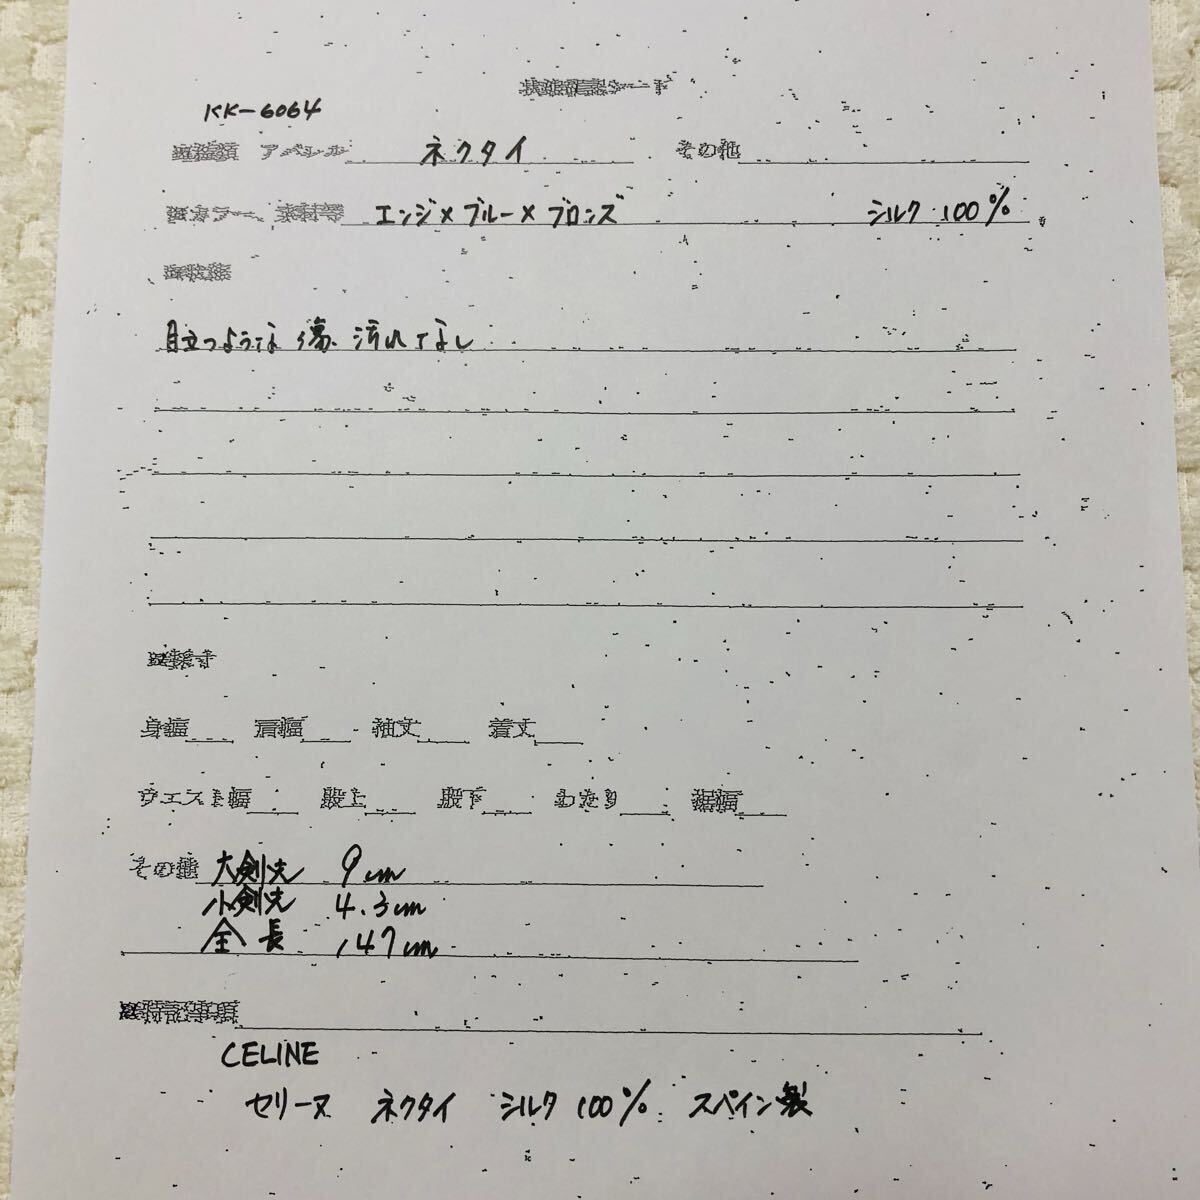 状態確認シート
KK-6064
アパレル ネクタイ その他
カラー、素材等 エンジ×ブルー×ブロンズ シルク 100%
目立つような 傷、汚れ なし
採寸
身幅 肩幅 袖丈 着丈
ウエスト幅 股上 股下 わたり 裾幅
その他 大剣先 9cm
小剣先 4.3cm
全長 147cm
特記事項
CELINE
セリーヌ ネクタイ シルク 100% スペイン製